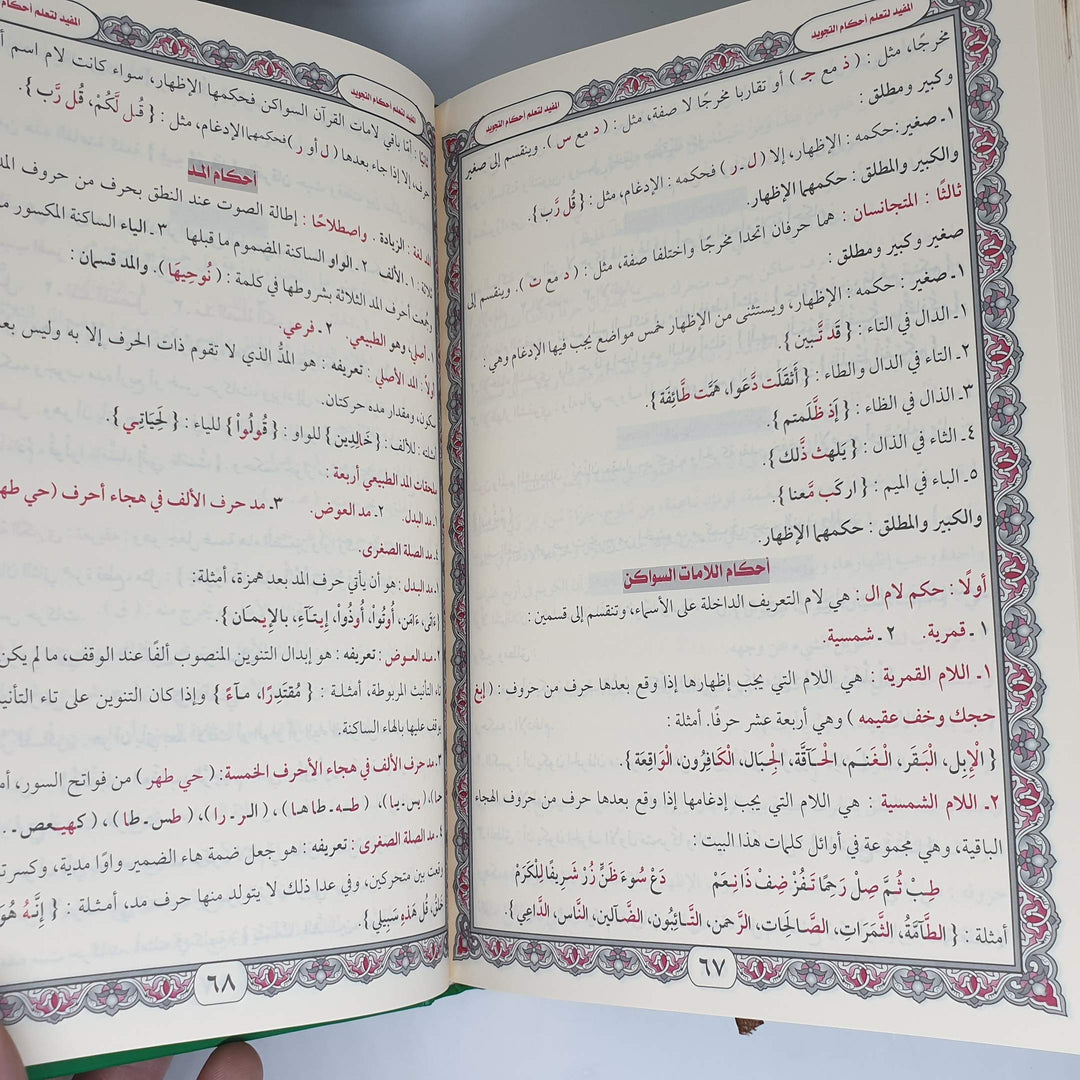 المفيد لتعلم أحكام التجويد
مخرجًا، مثل : ( ذ مع جـ ) أو تقاربا مخرجًا لا صفة، مثل : ( د مع س ). وينقسم إلى صغير
وكبير ومطلق :
١ـ صغير: حكمه : الإظهار، إلا ( ل ـ ر ) فحكمه : الإدغام، مثل : { قُل رَّب }.
والكبير والمطلق : حكمهما الإظهار.
ثالثًا : المتجانسان : هما حرفان اتحدا مخرجًا واختلفا صفة، مثل : ( د مع ت ). وينقسم إلى
صغير وكبير ومطلق :
١ـ صغير : حكمه : الإظهار، ويستثنى من الإظهار خمس مواضع يجب فيها الإدغام وهي :
١ـ الدال في التاء : { قَد تَّبين }.
٢ـ التاء في الدال والطاء : { أَثقَلَت دَّعَوا، هَمَّت طَّائِفَة }.
٣ـ الذال في الظاء : { إذ ظَّلَمتم }.
٤ـ الثاء في الذال : { يَلهَث ذَّلك }.
٥ـ الباء في الميم : { اركَب مَّعنا }.
والكبير والمطلق : حكمهما الإظهار.
أحكام اللامات السواكن
أولًا : حكم لام ال : هي لام التعريف الداخلة على الأسماء، وتنقسم إلى قسمين :
١ ـ قمرية. ٢ ـ شمسية.
١ـ اللام القمرية : هي اللام التي يجب إظهارها إذا وقع بعدها حرف من حروف : ( إبغ
حجك وخف عقيمه ) وهي أربعة عشر حرفًا. أمثلة :
{ الْإِبل، الْبَقَر، الْغَنَـم، الْحَـآقَّة، الْجِبَال، الْكَافِرُون، الْوَاقِعَة }.
٢ـ اللام الشمسية : هي اللام التي يجب إدغامها إذا وقع بعدها حرف من حروف الهجاء
الباقية، وهي مجموعة في أوائل كلمات هذا البيت :
طِبْ ثُمَّ صِلْ رَحِمًا تَفُزْ ضِفْ ذَا نِعَمْ دَعْ سُوءَ ظَنٍّ زُرْ شَرِيفًا لِلْكَرَمْ
أمثلة : { الطَّآمَّةُ، الثَّمَرَاتِ، الصَّالِحَاتِ، الرَّحمن، التَّـائِبُون، الضَّـآلين، النَّاس، الدَّاعِي }.
٦٧
المفيد لتعلم أحكام التجويد
ثانيًا : أمّا باقي لامات القرآن السواكن فحكمها الإظهار، سواء كانت لام اسم أ
حرف، إلا إذا جاء بعدها ( ل أو ر ) فحكمها الإدغام، مثل : { قُل لَّكُمْ، قُل رَّب }.
أحكام المد
المد لغة : الزيادة . واصطلاحًا : إطالة الصوت عند النطق بحرف من حروف المد
ثلاثة : ١ ـ الألف ٢ ـ الواو الساكنة المضموم ما قبلها ٣ ـ الياء الساكنة المكسور م
وجُمعت أحرف المد الثلاثة بشروطها في كلمة : ( نُوحِيهَا ). والمد قسمان :
١ـ أصلي، وهو الطبيعي. ٢ ـ فرعي.
أولًا : المد الأصلي : تعريفه : هو المدُّ الذي لا تقوم ذات الحرف إلا به وليس بعد
سكون، ومقدار مده حركتان.
أمثلته : للألف : { خَالِدِين } للواو : { قُولُواْ } للياء : { لِحَيَاتِي }.
ملحقات المد الطبيعي أربعة :
١ـ مد البدل. ٢ـ مد العوض. ٣ـ مد حرف الألف في هجاء أحرف (حي طهر
٤ـ مد الصلة الصغرى.
١ـ مد البدل : هو أن يأتي حرف المد بعد همزة، أمثلة :
ءَامَن، أُوتُواْ، أُوذُواْ، إيتَـآء، بالإِيـمَـان }.
٢ـ مد العوض : تعريفه : هو إبدال التنوين المنصوب ألفًا عند الوقف، ما لم يكن
تاء التأنيث المربوطة، أمثلـة : { مُقتَدِرًا، مـَآءً } وإذا كان التنوين على تاء التأني
يوقف عليها بالهاء الساكنة.
٣ـ مد حرف الألف في هجاء الأحرف الخمسة: (حي طهر) من فواتح السور، أم
(يس ـ يا)، ( طـه ـ طاها)، (الـر ـ را)، ( طس ـ طا)، (كهيعص ـ
٤ـ مد الصلة الصغرى : تعريفه : هو جعل ضمة هاء الضمير واوًا مدية، وكسرت
وقعت بين متحركين، وفي عدا ذلك لا يتولد منها حرف مد، أمثلة : { إنَّهُ هُوَ
قُل هَٰذِهِ سَبِيلِي }.
٦٨